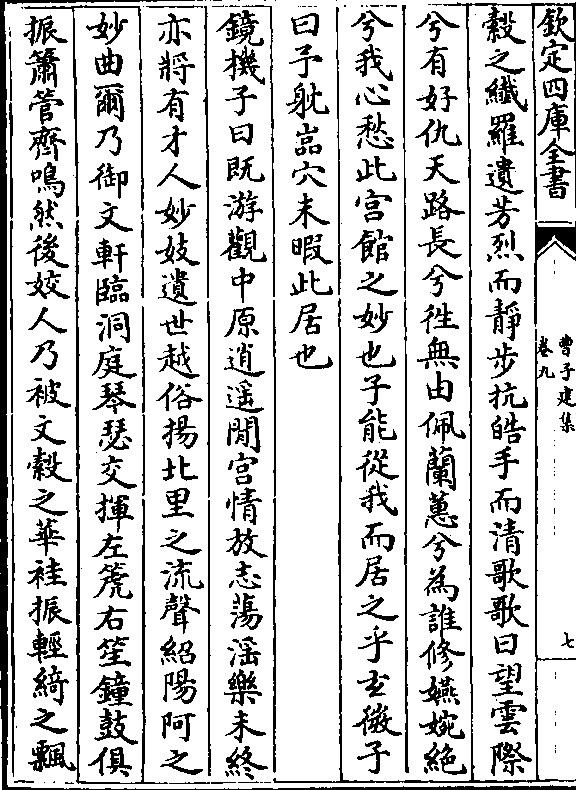 欽定四庫全書
曹子建集
卷九
七
縠之纖羅遺芳烈而靜步抗皓手而清歌歌曰望雲際
兮有好仇天路長兮徃無由佩蘭蕙兮為誰修嬿婉絕
兮我心愁此宮館之妙也子能從我而居之乎玄微子
曰予躭巖穴未暇此居也
鏡機子曰既游觀中原逍遥閒宮情放志蕩淫樂未終
亦將有才人妙妓遺世越俗揚北里之流聲紹陽阿之
妙曲爾乃御文軒臨洞庭琴瑟交揮左箎右笙鐘鼓俱
振簫管齊鳴然後姣人乃被文縠之華袿振輕綺之飄